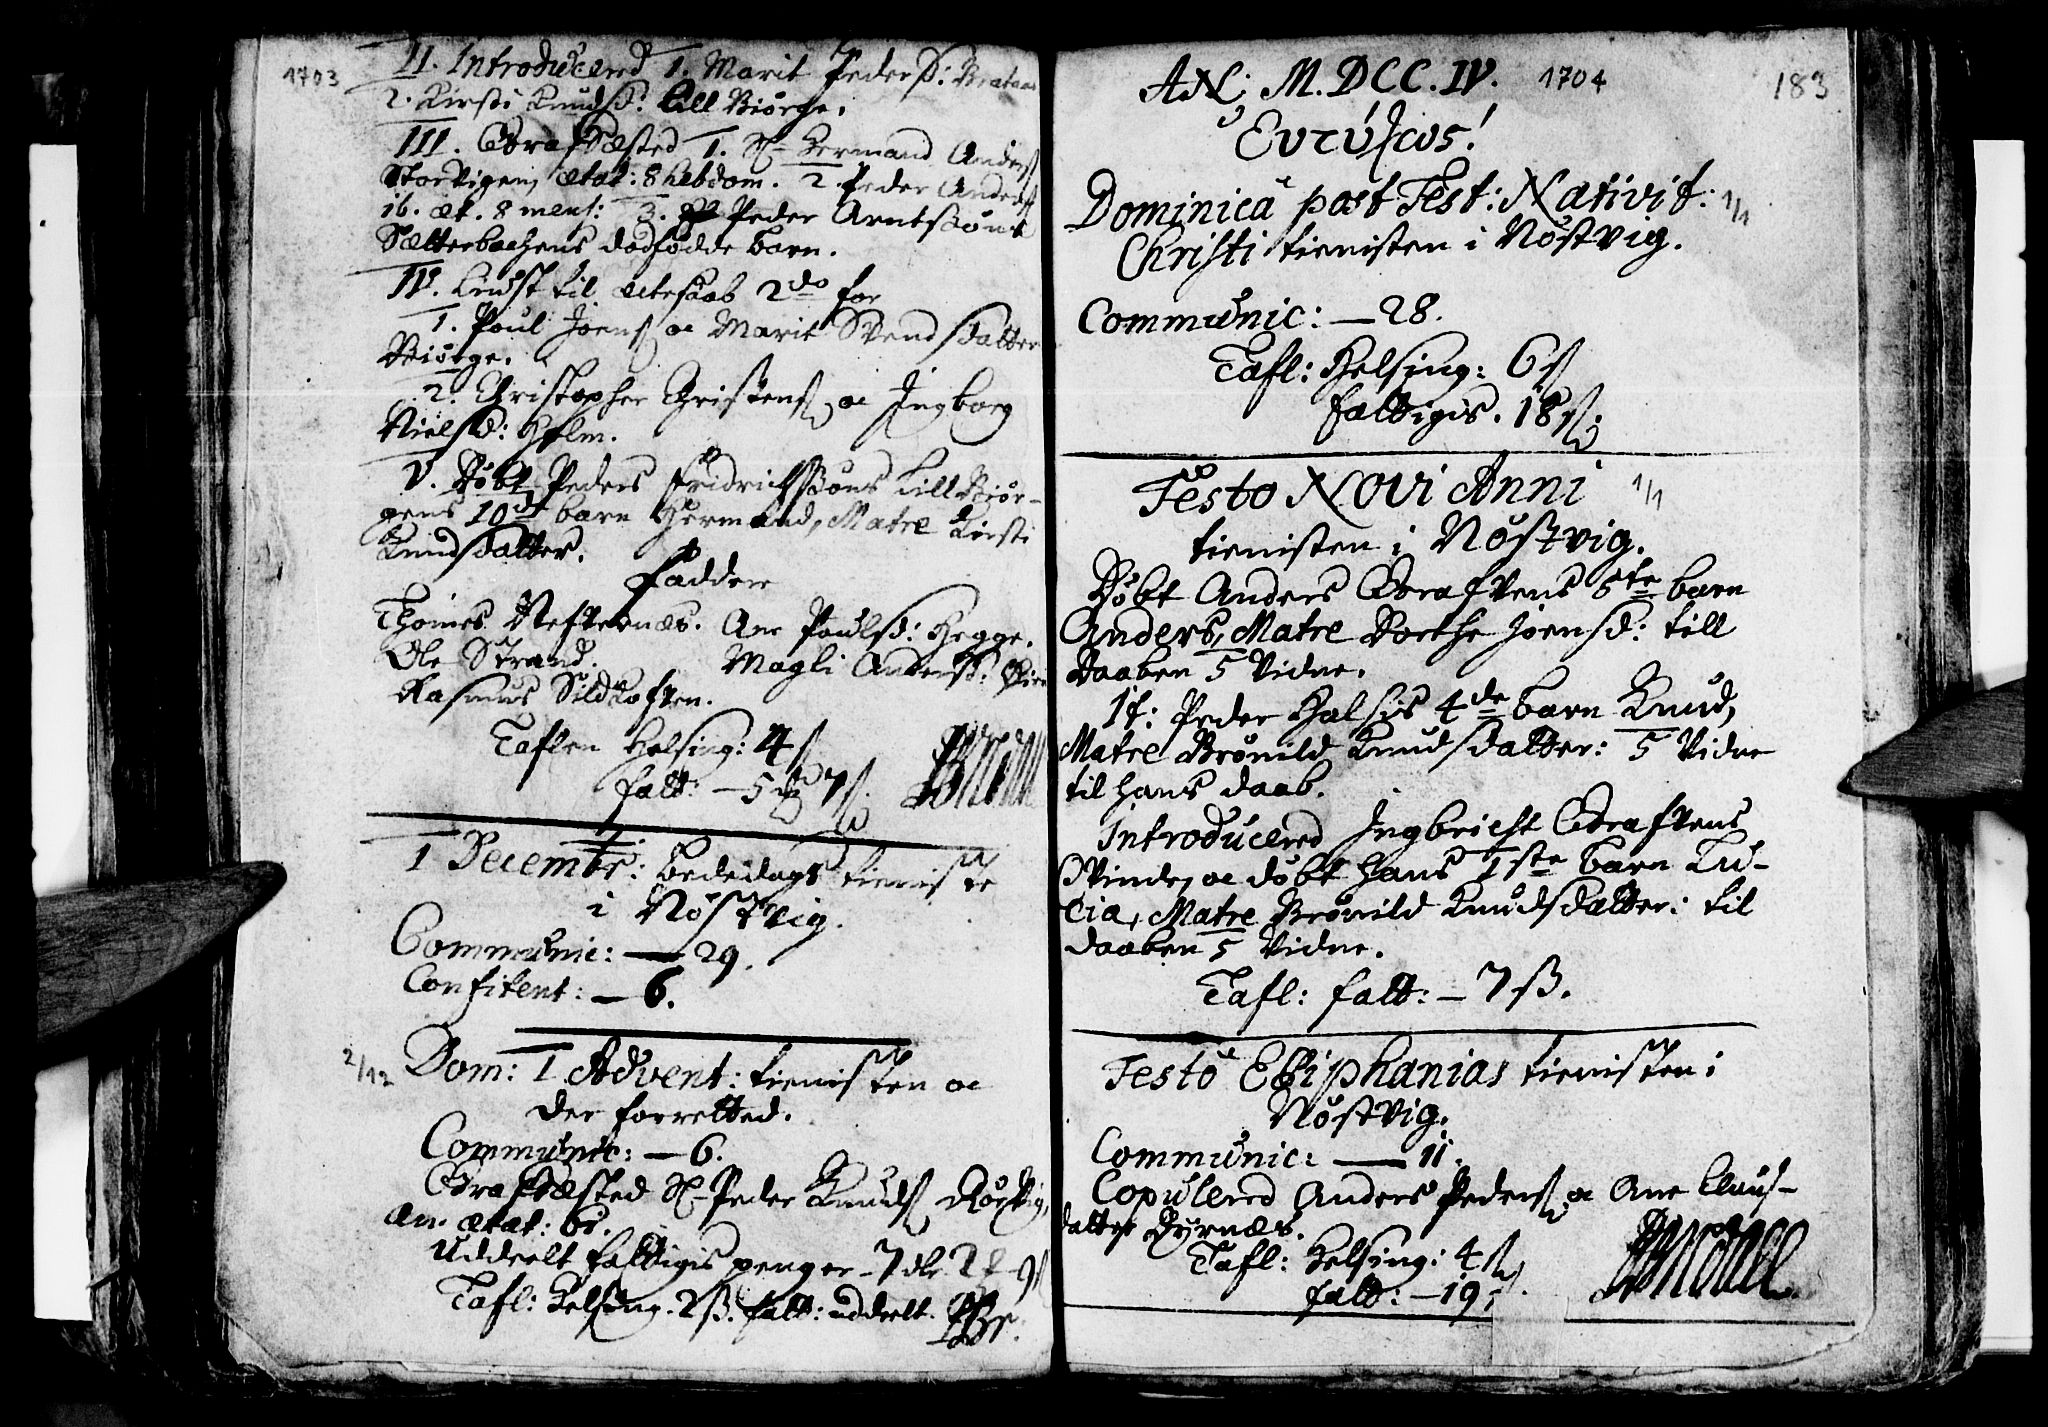 1703
II. Introducered 1. Marit Peders: Brataas
2. Kirsti Knudsd: Lill Biørge.
III. Grafsæsted 1. Sl. Hermand Anders
Storvigen, ætat: 8 hebdom. 2. Peder Anders
16. æt. 8 mens: 3. Peder Arntssøns
Sætterbachens dødfødde barn.
IV. Liust til ectesaab 2do for
1. Poul Joens: oc Marit Svends datter
Biørge.
2. Christopher Christens: oc Ingborg
Nielsd: Holm.
V. Døbt Peders Fridrichssøns Lill Biør-
gens 10de barn Hermand, Matre Kirsti
Knudsdatter.
Faddere
Thomes Nesternæs. Ane Poulsd: Hegge.
Ole Strand. Magli Andersd:
Rasmus Sildtoften.
Taflen Helsing: 4 s
fatt: - 5 7 s.
1 Decembr: Bededags tienisten
i Nøstvig.
Communic: — 29.
Confitent: — 6.
2/12 Dom: 1 Advent: tienisten oc
der forretted.
Communic: — 6.
Grafsæsted Sl. Peder Knuds Rørvig,
an. ætat: 61.
Uddeelt fattigis penger - 7 dlr 2
Tafl: Helsing. 2 ß. fatt: uddeelt.
AN: M.DCC.IV. 1704 183
Ευτύχως!
Dominica post Fest: Nativit: 1/1
Christi tienisten i Nøstvig.
Communic: — 28.
Tafl: Helsing: 6 s
fattigis. 18 s.
Festo Novi Anni 1/1
tienisten i Nøstvig.
Døbt Anders Graftens 5te barn
Anders, Matre Dorthe Joensd: till
Daaben 5 Vidne.
It: Peder Halsis 4de barn Knud,
Matre Brønild Knudsdatter: 5 Vidne
til hans daab.
Introducered Ingbricht Graftens
Qvinde, oc døbt hans 1ste barn Lu-
cia, Matre Brønild Knudsdatter: til
daaben 5 Vidne.
Tafl: fatt: - 7 ß.
Festo Epiphanias tienisten i
Nøstvig.
Communic: — 11.
Copulered Anders Peders: oc Ane Claus-
datter Byrnæs.
Tafl: Helsing: 4 s
fatt: - 19 s.